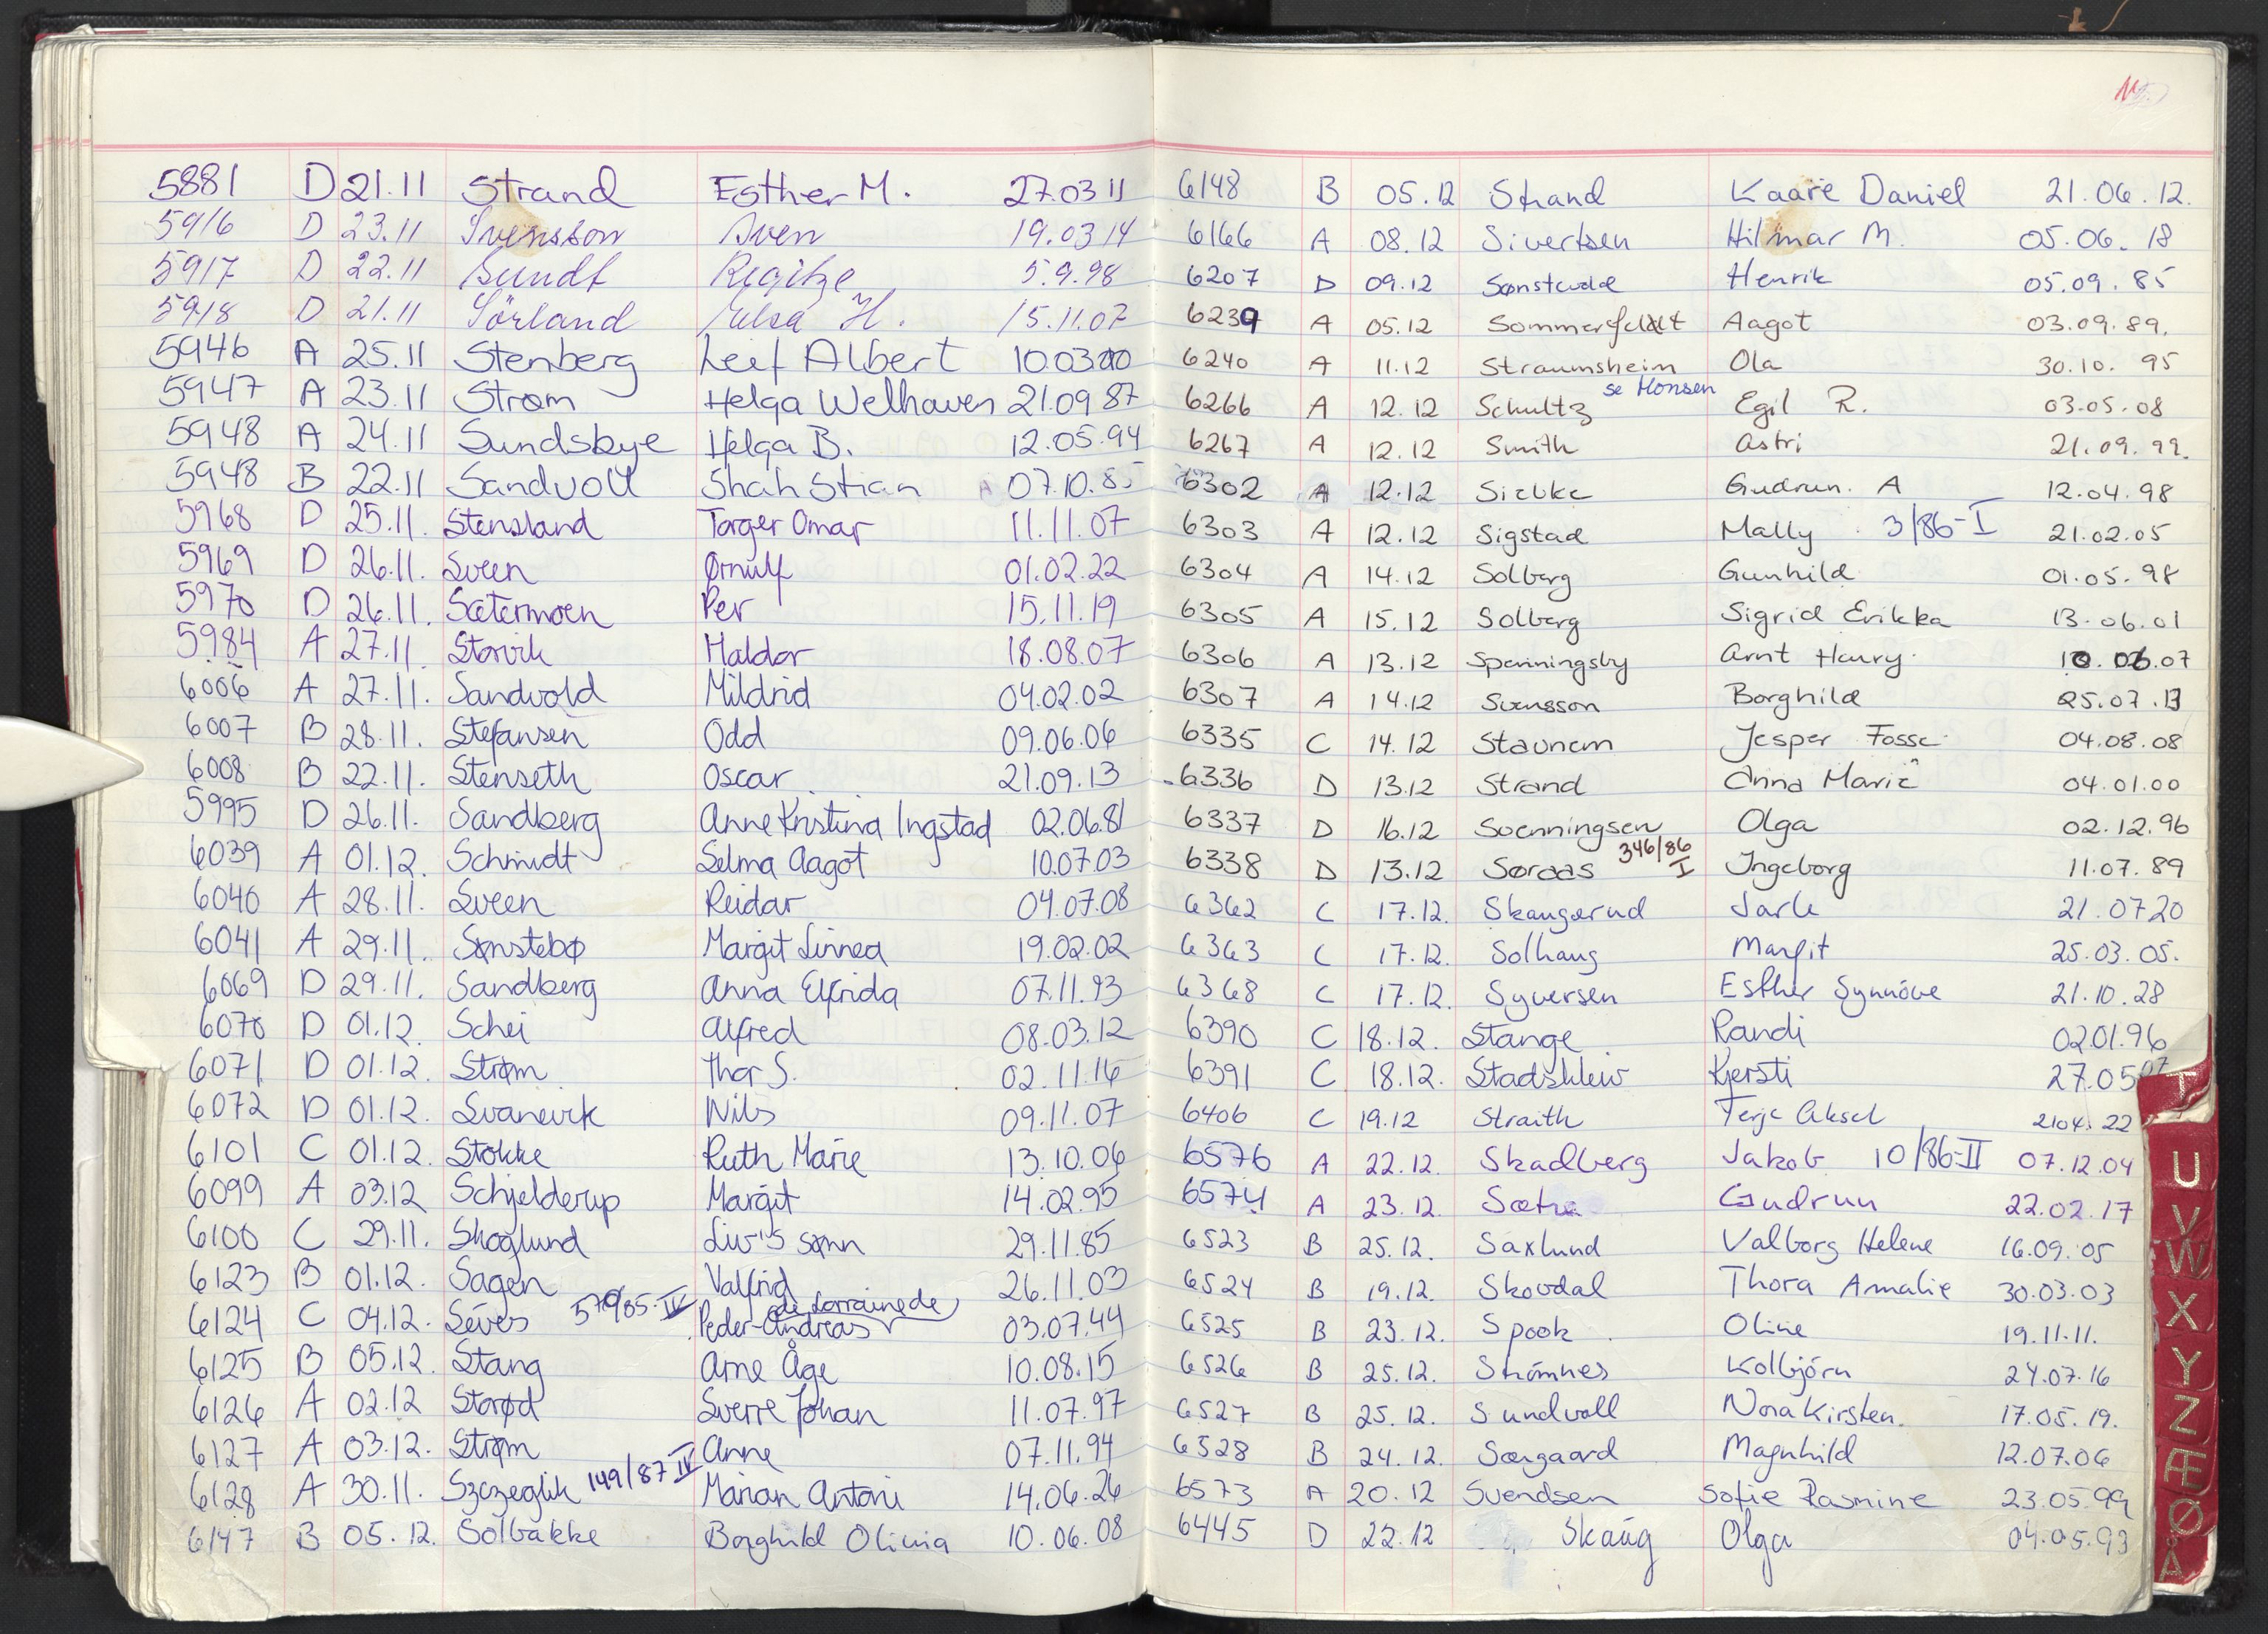 5881 D 21.11 Strand Esther M. 27.03 11
5916 D 23.11 Svensson Sven 19.03 14
5917 D 22.11 Sundt Regitze 5.9.98
5918 D 21.11 Sörland Elsa H. 15.11.07
5946 A 25.11 Stenberg Leif Albert 10.03.00
5947 A 23.11 Strøm Helga Welhaven 21.09 87
5948 A 24.11 Sundsbye Helga B. 12.05.94
5948 B 22.11 Sandvoll Shah Stian 07.10.85
5968 D 25.11. Stensland Torger Omar 11.11.07
5969 D 26.11. Sveen Ørnulf 01.02.22
5970 D 26.11. Sætermoen Per 15.11.19
5984 A 27.11. Storvik Haldor 18.08.07
6006 A 27.11. Sandvold Mildrid 04.02.02
6007 B 28.11. Stefansen Odd 09.06.06
6008 B 22.11. Stenseth Oscar 21.09.13
5995 D 26.11. Sandberg Anne Kristina Ingstad 02.06.81
6039 A 01.12. Schmidt Selma Aagot 10.07.03
6040 A 28.11. Sveen Reidar 04.07.08
6041 A 29.11. Sønstebø Margit Linnea 19.02.02
6069 D 29.11. Sandberg Anna Elfrida 07.11.93
6070 D 01.12. Schei Alfred 08.03.12
6071 D 01.12. Strøm Thor S. 02.11.16
6072 D 01.12. Svanevik Nils 09.11.07
6101 C 01.12. Stokke Ruth Marie 13.10.06
6099 A 03.12 Schjelderup Margit 14.02.95
6100 C 29.11. Skoglund Liv's sønn 29.11.85
6123 B 01.12. Sagen Valfrid 26.11.03
6124 C 04.12. Séves 570/85-IV Peder-Andreas de Lorraine de 03.07.44
6125 B 05.12. Stang Arne Åge 10.08.15
6126 A 02.12 Storød Sverre Johan 11.07.97
6127 A 03.12. Strøm Anne 07.11.94
6128 A 30.11. Szczeglik 149/87 IV Marian Antoni 14.06.26
6147 B 05.12. Solbakke Borghild Olivia 10.06.08
6148 B 05.12 Strand Kaare Daniel 21.06.12.
6166 A 08.12 Sivertsen Hilmar M. 05.06.18
6207 D 09.12 Sønstevold Henrik 05.09.85
6239 A 05.12 Sommerfeldt Aagot 03.09.89.
6240 A 11.12 Straumsheim Ola 30.10.95
6266 A 12.12 Schultz se Monsen Egil R. 03.05.08
6267 A 12.12 Smith Astri 21.09.99.
6302 A 12.12 Siebke Gudrun. A 12.04.98
6303 A 12.12 Sigstad Mally 3/86-I 21.02.05
6304 A 14.12 Solberg Gunhild 01.05.98
6305 A 15.12 Solberg Sigrid Erikka 13.06.01
6306 A 13.12 Spenningsby Arnt Henry 10.06.07
6307 A 14.12 Svensson Borghild 25.07.13
6335 C 14.12 Staunem Jesper Fosse 04.08.08
6336 D 13.12 Strand Anna Marie 04.01.00
6337 D 16.12 Svenningsen Olga 02.12.96
6338 D 13.12 Søraas 346/86 I Ingeborg 11.07.89
6362 C 17.12. Skaugerud Jarle 21.07 20
6363 C 17.12. Solhaug Margit 25.03.05.
6368 C 17.12. Syversen Esther Synnöve 21.10.28
6390 C 18.12. Stange Randi 02.01.96
6391 C 18.12. Stadskleiv Kjersti 27.05 07
6406 C 19.12 Straith Terje Aksel 21.04.22
6576 A 22.12. Skadberg Jakob 10/86-II 07.12.04
6574 A 23.12. Sætre Gudrun 22.02.17
6523 B 25.12. Saxlund Valborg Helene 16.09.05
6524 B 19.12. Skovdal Thora Amalie 30.03.03
6525 B 23.12. Spook Oline 19.11.11.
6526 B 25.12. Strömnes Kolbjörn 24.07.16
6527 B 25.12. Sundvoll Nora Kirsten. 17.05.19.
6528 B 24.12. Sørgaard Magnhild 12.07.06
6573 A 20.12 Svendsen Sofie Rasmine 23.05.99
6445 D 22.12 Skaug Olga 04.05.93
T
U
V
W
X
Y
Z
Æ
Ø
Å